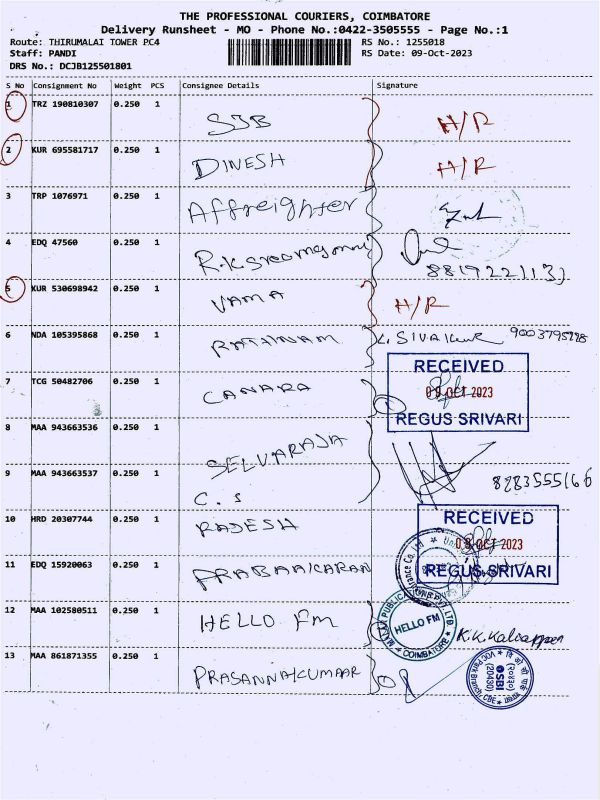 THE PROFESSIONAL COURIERS, COIMBATORE
Delivery Runsheet - MO - Phone No.:0422-3505555 - Page No.:1
Route: THIRUMALAI TOWER PC4 RS No.: 1255018
Staff: PANDI RS Date: 09-Oct-2023
DRS No.: DCJB125501801
S No Consignment No Weight PCS Consignee Details Signature
1 TRZ 190810307 0.250 1 SJB H/R
2 KUR 695581717 0.250 1 DINESH H/R
3 TRP 1076971 0.250 1 Affreighter
4 EDQ 47560 0.250 1 R.K
5 KUR 530698942 0.250 1 VAMA H/R
6 NDA 105395868 0.250 1 RATHINAM
RECEIVED
09 OCT 2023
REGUS SRIVARI
7 TCG 50482706 0.250 1 CANARA
8 MAA 943663536 0.250 1 SELVARAJA
9 MAA 943663537 0.250 1 C.S 8283555166
RECEIVED
09 OCT 2023
REGUS SRIVARI
10 HRD 20307744 0.250 1 RAJESH
11 EDQ 15920063 0.250 1 PRABAAKARAN
12 MAA 102580511 0.250 1 HELLO FM
HELLO FM
COIMBATORE
13 MAA 861871355 0.250 1 PRASANNAKUMAAR
SBI
(20430)